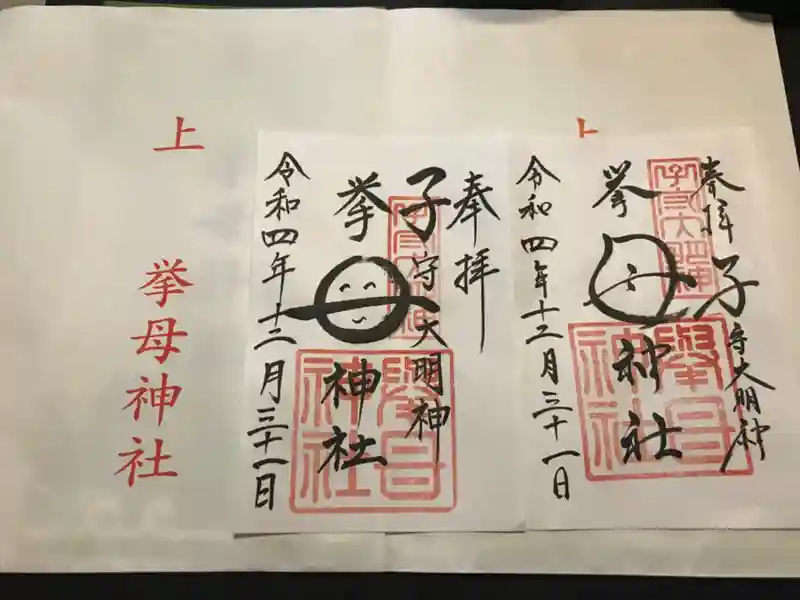 奉拝
子守大明神
子守大明神
挙母神社
擧母
神社
令和四年十二月三十一日
奉拝
子守大明神
子守大明神
挙母神社
擧母
神社
令和四年十二月三十一日
上
挙母神社